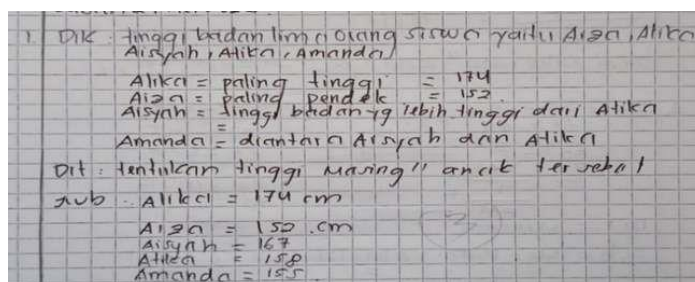 1. Dik : tinggi badan lima orang siswa yaitu Aiza, Alika
Aisyah, Atika, Amanda
Alika = paling tinggi = 174
Aiza = paling pendek = 152
Aisyah = tinggi badan yg lebih tinggi dari Atika
=
Amanda = diantara Aisyah dan Atika
Dit : tentukan tinggi masing" anak tersebut
Jwb : Alika = 174 cm
Aiza = 152 cm
Aisyah = 167
Atika = 158
Amanda = 155